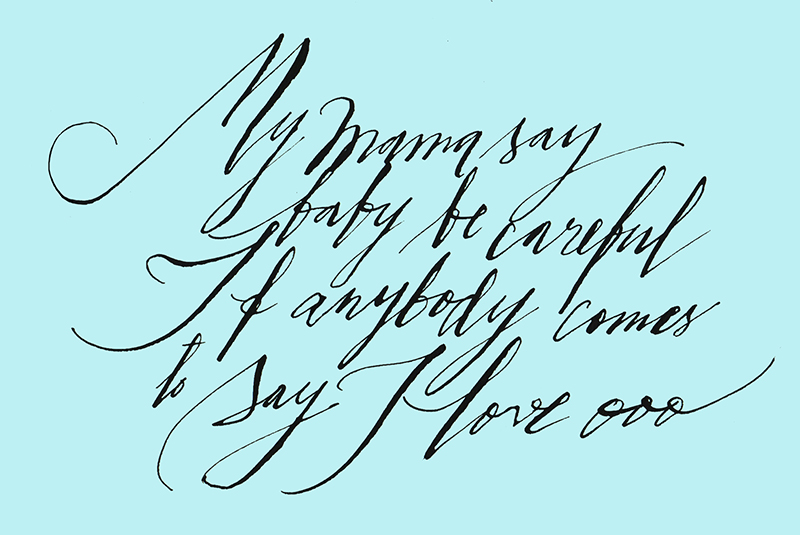 My mama say
baby be careful
If anybody comes
to say I love ooo